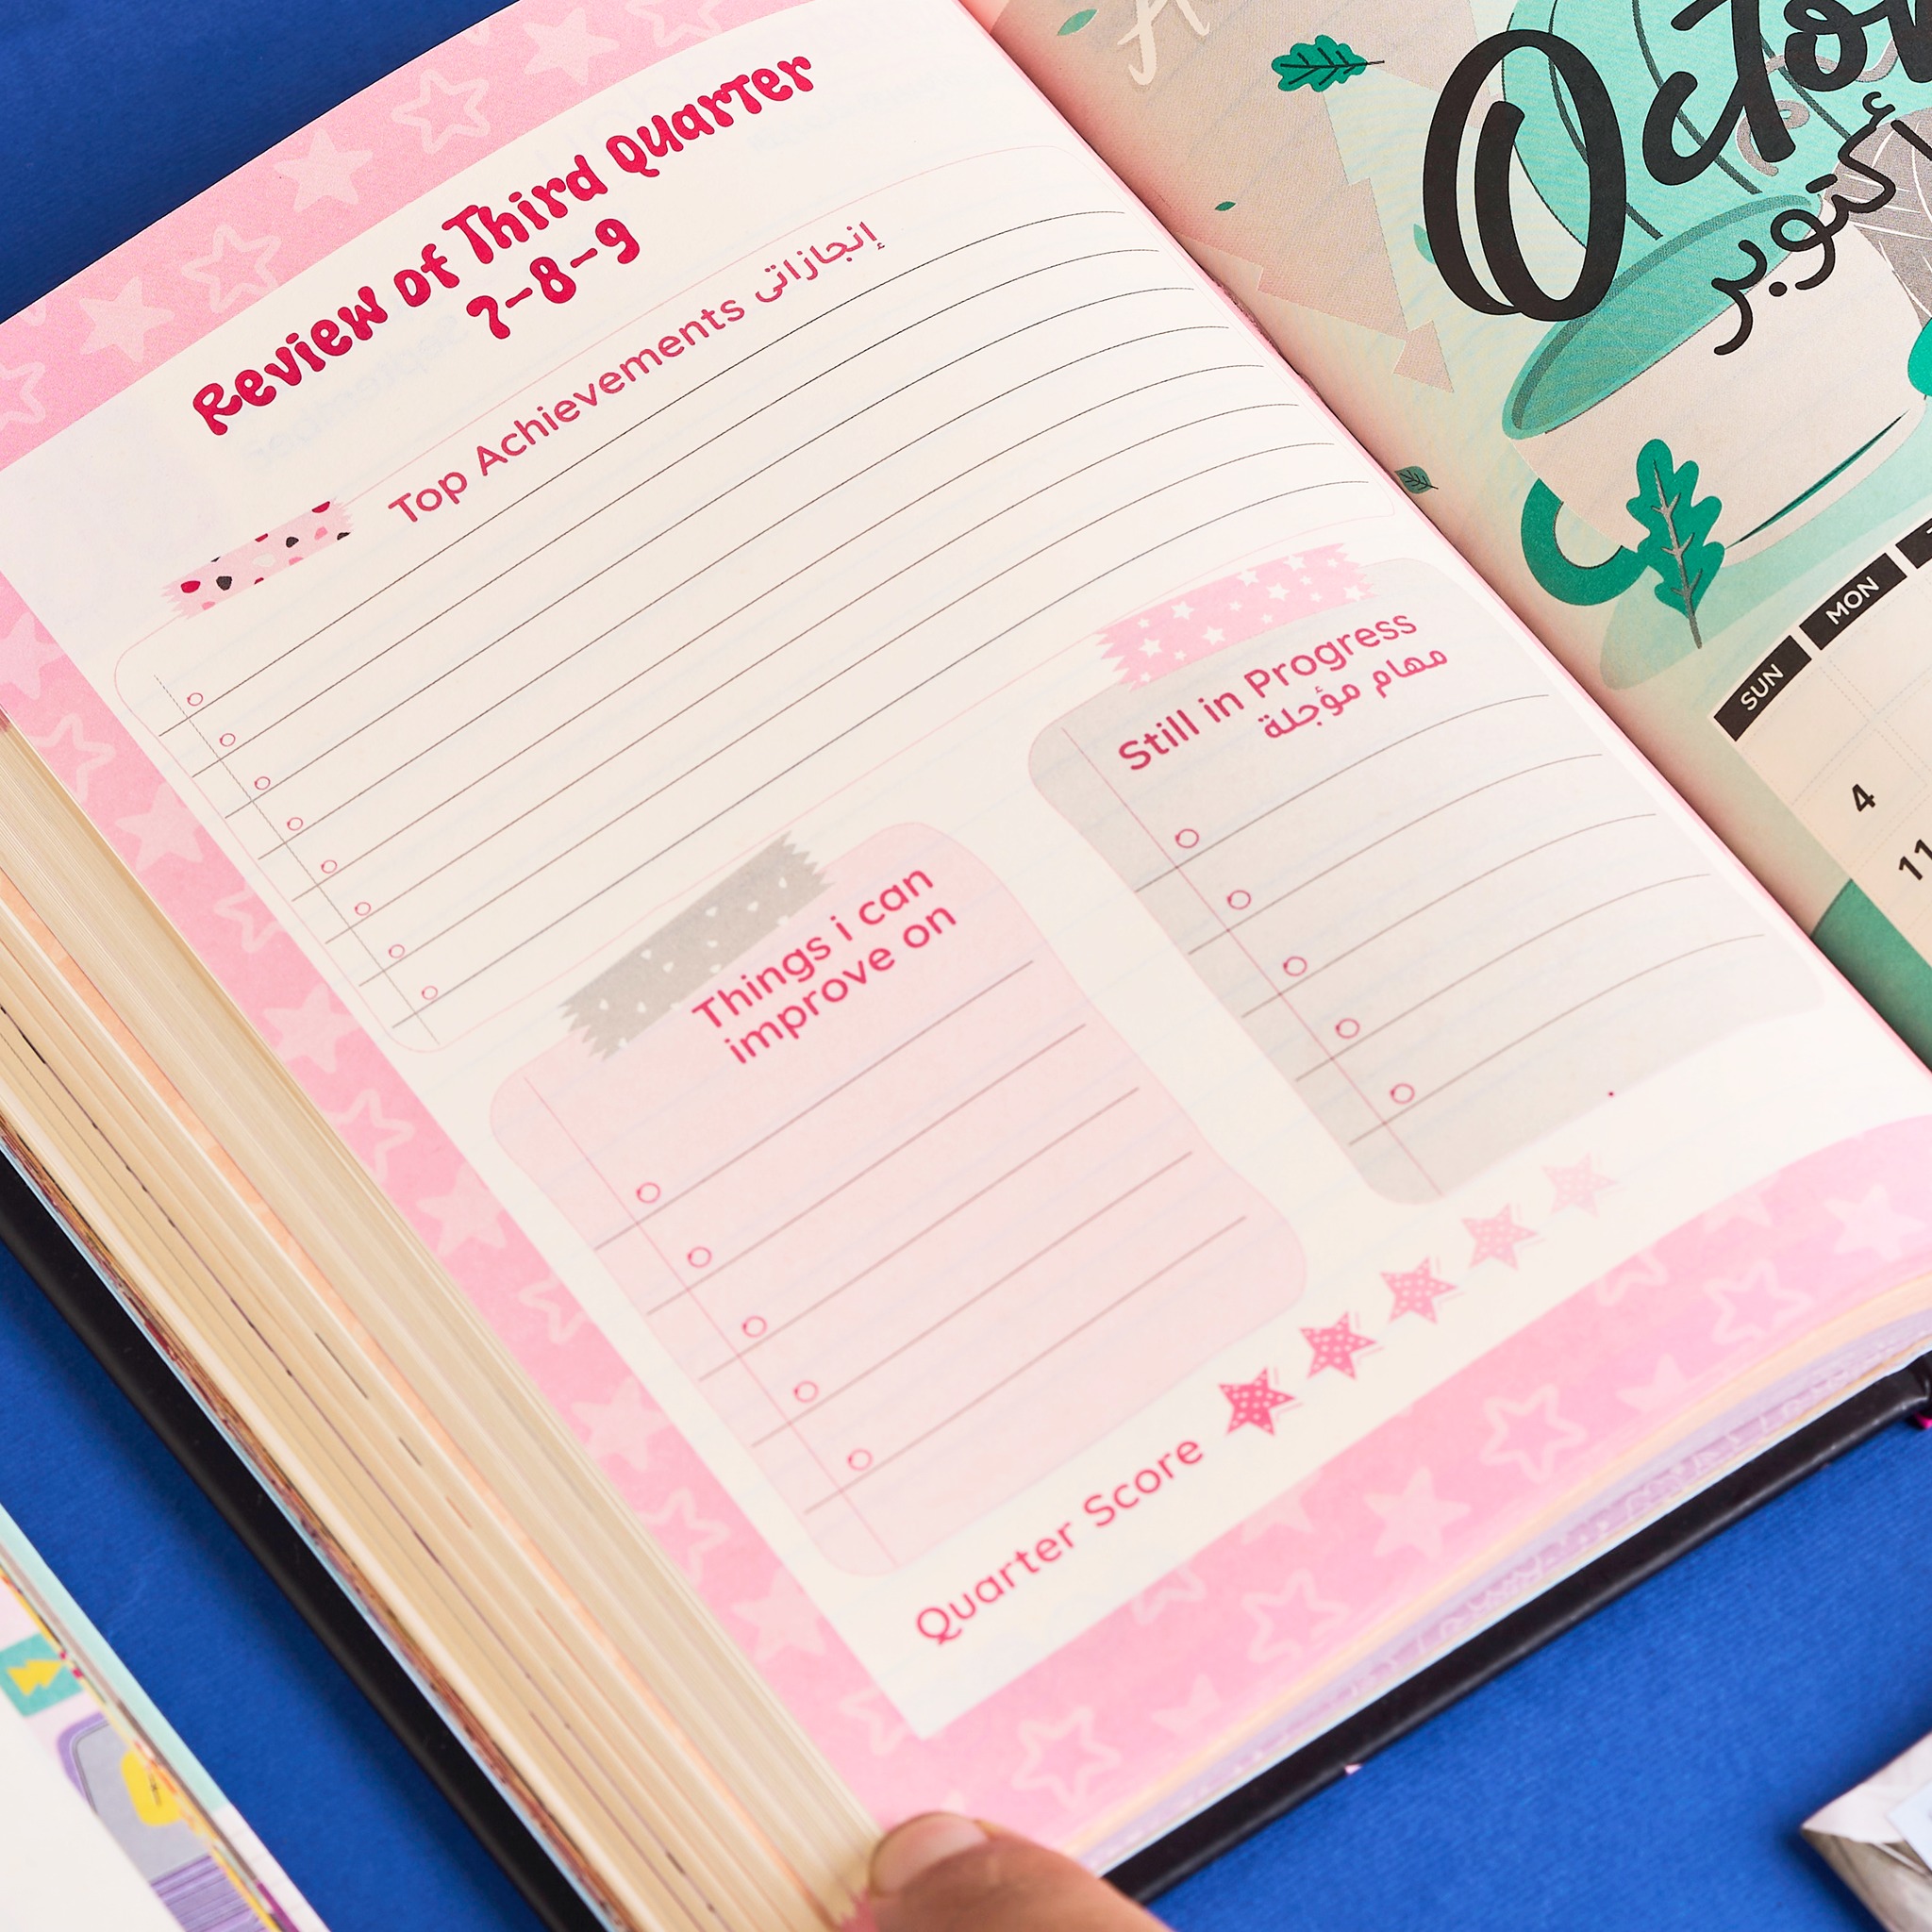 Review of Third Quarter
7-8-9
Top Achievements إنجازاتى
Things i can
improve on
Still in Progress
مهام مؤجلة
Quarter Score
أكتوبر
SUN MON
4
11